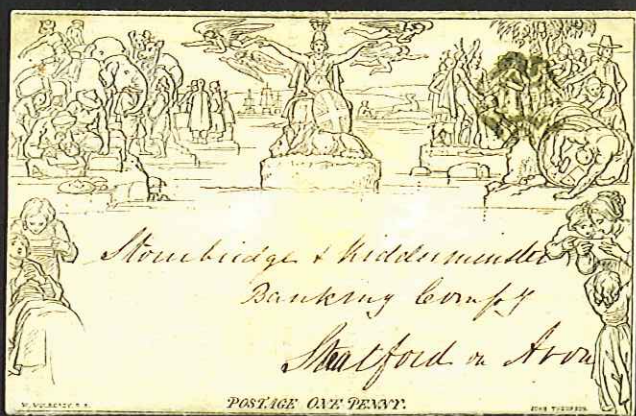 Stourbridge & Kidderminster
Banking Compy
Stratford on Avon
W. MULREADY. R.A.
POSTAGE ONE PENNY.
JOHN THOMPSON